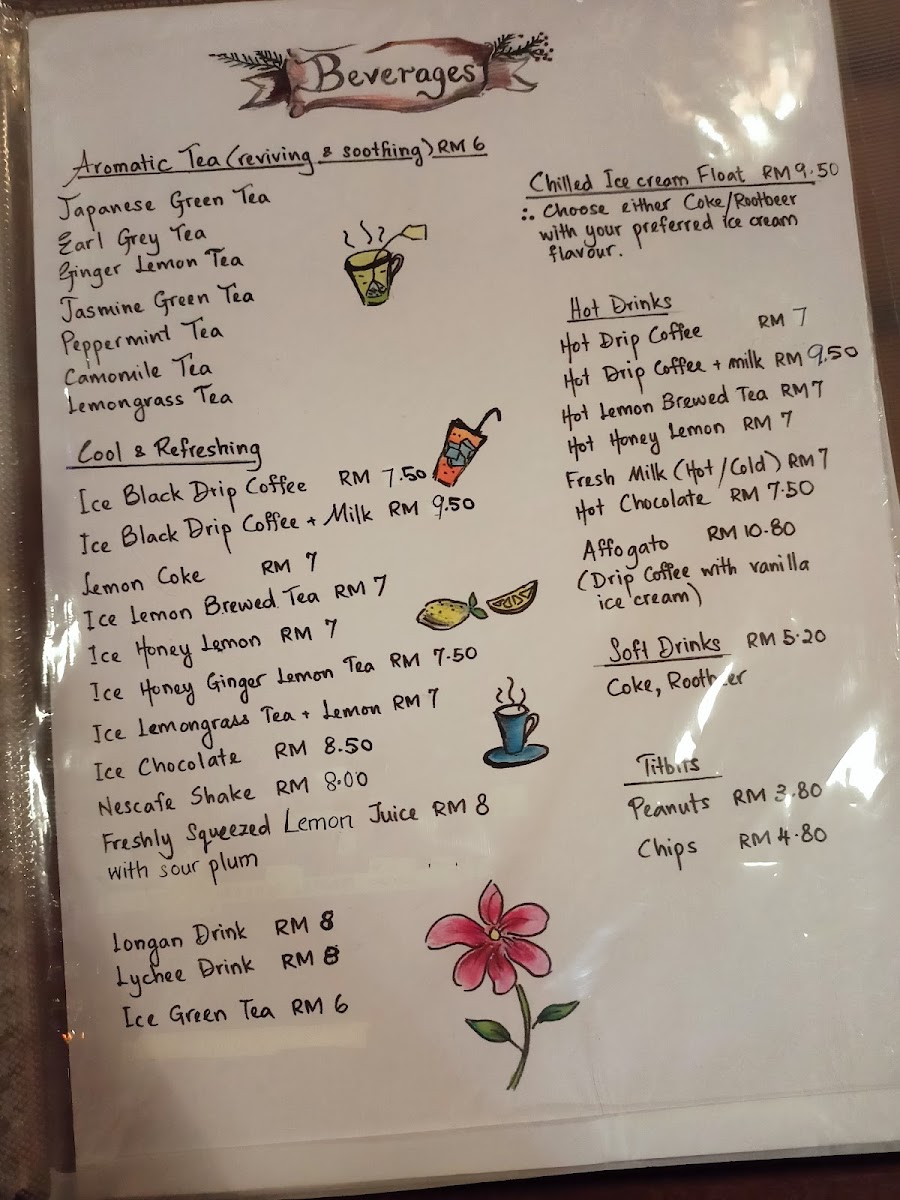 Beverages
Aromatic Tea (reviving & soothing) RM 6
Japanese Green Tea
Earl Grey Tea
Ginger Lemon Tea
Jasmine Green Tea
Peppermint Tea
Camomile Tea
Lemongrass Tea
Cool & Refreshing
Ice Black Drip Coffee RM 7.50
Ice Black Drip Coffee + Milk RM 9.50
Lemon Coke RM 7
Ice Lemon Brewed Tea RM 7
Ice Honey Lemon RM 7
Ice Honey Ginger Lemon Tea RM 7.50
Ice Lemongrass Tea + Lemon RM 7
Ice Chocolate RM 8.50
Nescafe Shake RM 8.00
Freshly Squeezed Lemon Juice RM 8
with sour plum
Longan Drink RM 8
Lychee Drink RM 8
Ice Green Tea RM 6
Chilled Ice cream Float RM 9.50
∴ Choose either Coke/Rootbeer
with your preferred ice cream
flavour.
Hot Drinks
Hot Drip Coffee RM 7
Hot Drip Coffee + milk RM 9.50
Hot Lemon Brewed Tea RM 7
Hot Honey Lemon RM 7
Fresh Milk (Hot/Cold) RM 7
Hot Chocolate RM 7.50
Affogato RM 10.80
(Drip Coffee with vanilla
ice cream)
Soft Drinks RM 5.20
Coke, Rootbeer
Titbits
Peanuts RM 3.80
Chips RM 4.80